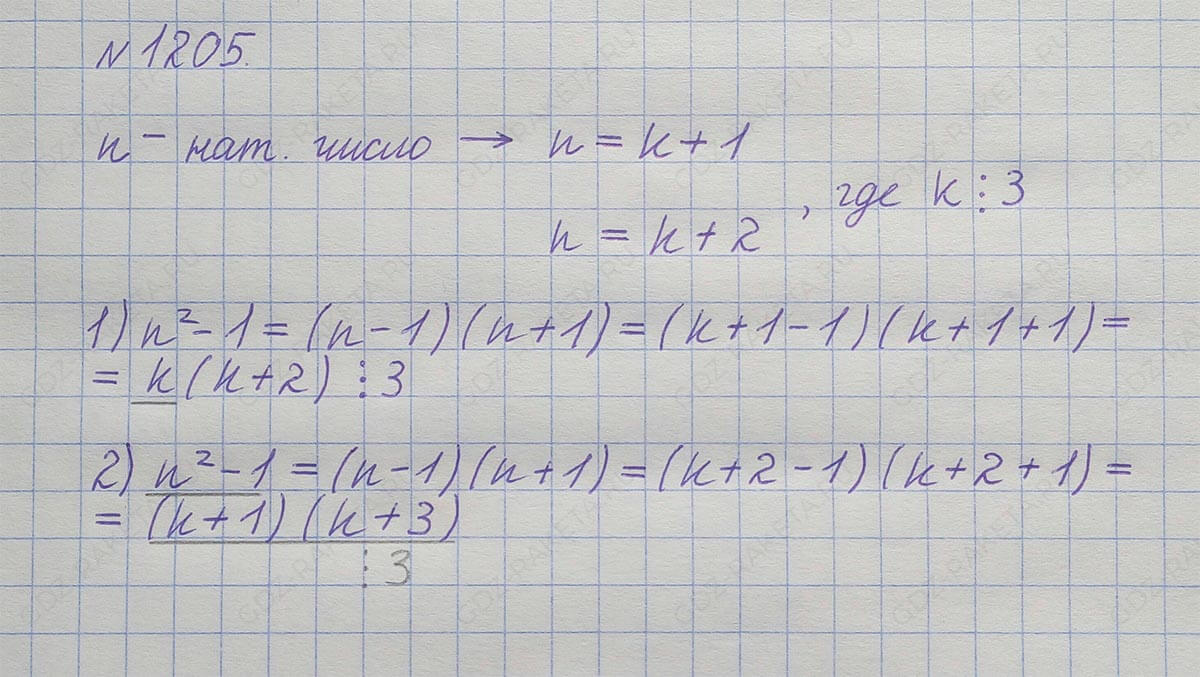 №1205.
n - нат. число → n = k + 1
n = k + 2 , где k ⋮ 3
1) n² - 1 = (n - 1)(n + 1) = (k + 1 - 1)(k + 1 + 1) =
= k(k + 2) ⋮ 3
2) n² - 1 = (n - 1)(n + 1) = (k + 2 - 1)(k + 2 + 1) =
= (k + 1)(k + 3)
⋮ 3
GDZ-RAKETA.RU